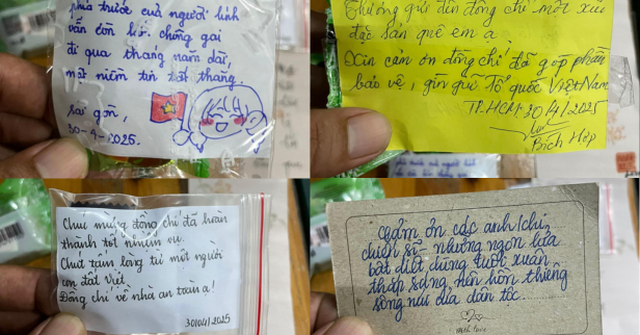 phía trước của người lính
vẫn còn lắm chông gai
đi qua tháng năm dài,
một niềm tin tất thắng.
Sài Gòn,
30-4-2025.
Thương gửi đến đồng chí một xíu
đặc sản quê em ạ.
Xin cảm ơn đồng chí đã góp phần
bảo vệ, gìn giữ Tổ quốc Việt Nam
TP.HCM: 30/4/2025
Bích Hợp
Chúc mừng đồng chí đã hoàn
thành tốt nhiệm vụ.
Chút tấm lòng từ một người
con đất Việt.
Đồng chí về nhà an toàn ạ!
30/04/2025
Cảm ơn các anh/chị
chiến sĩ - những ngọn lửa
bất diệt dùng tuổi xuân
thắp sáng hồn thiêng
sông núi của dân tộc..........